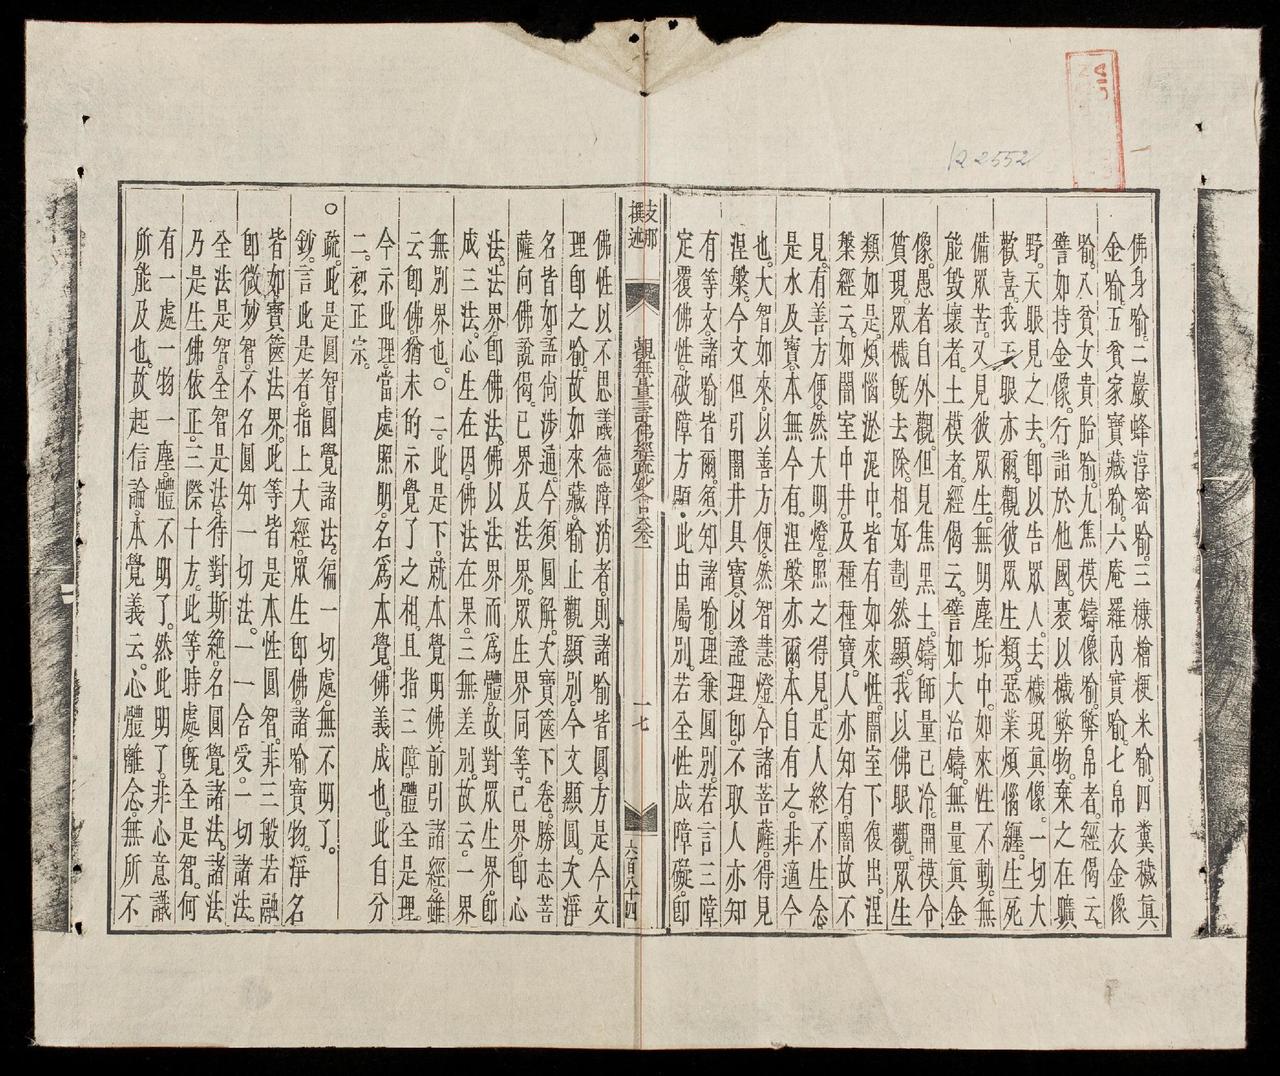 12 2552
佛身喻。二巖蜂淳蜜喻。三糠糩粳米喻。四糞穢眞
金喻。五貧家寶藏喻。六庵羅內實喻。七帛衣金像
喻。八貧女貴胎喻。九焦模鑄像喻。弊帛者。經偈云。
譬如持金像。行詣於他國。裹以穢弊物。棄之在曠
野。天眼見之去。卽以告眾人。去穢現眞像。一切大
歡喜。我天眼亦爾。觀彼眾生類。惡業煩惱纏。生死
備眾苦。又見彼眾生。無明塵垢中。如來性不動。無
能毀壞者。土模者。經偈云。譬如大冶鑄。無量眞金
像。愚者自外觀。但見焦黑土。鑄師量已冷。開模令
質現。眾穢旣去除。相好劃然顯。我以佛眼觀。眾生
類如是。煩惱淤泥中。皆有如來性。闇室下復出。涅
槃經云。如闇室中井。及種種寶。人亦知有。闇故不
見。有善方便。然大明燈。照之得見。是人終不生念
是水及寶。本無今有。涅槃亦爾。本自有之。非適今
也。大智如來。以善方便。然智慧燈。令諸菩薩。得見
涅槃。今文但引闇井具寶。以證理卽。不取人亦知
有等文。諸喻皆爾。須知諸喻。理兼圓別。若言三障
定覆佛性。破障方顯。此由屬別。若全性成障礙。卽
支那
撰述
觀無量壽佛經疏鈔會本卷一
一七
六百八十四
佛性以不思議德障消者。則諸喻皆圓。方是今文
理卽之喻。故如來藏喻止觀顯別。今文顯圓。次淨
名皆如。語尚涉通。今須圓解。次寶篋下卷。勝志菩
薩向佛說偈。已界及法界。眾生界同等。已界。卽心
法。法界卽佛法。佛以法界而爲體。故對眾生界。卽
成三法。心生在因。佛法在果。三無差別。故云。一界
無別界也。○二。此是下。就本覺明佛前引諸經。雖
云卽佛猶未的示覺了之相。且指三障。體全是理。
今示此理。當處照明。名爲本覺。佛義成也。此自分
二。初正宗。
○疏。此是圓智。圓覺諸法。徧一切處。無不明了。
鈔。言此是者。指上大經。眾生卽佛。諸喻寶物。淨名
皆如寶篋法界。此等皆是本性圓智。非三般若融
卽微妙智。不名圓知一切法。一一含受。一切諸法。
全法是智。全智是法。待對斯絕。名圓覺諸法。諸法
乃是生佛依正。三際十方。此等時處。旣全是智。何
有一處一物一塵。體不明了。然此明了。非心意識
所能及也。故起信論。本覺義云。心體離念。無所不